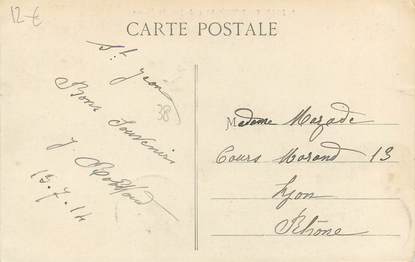 12 €
CARTE POSTALE
St Jean
38
Bons Souvenirs
J
13.7.14
Madame Mazade
Cours Morand 13
Lyon
Rhône